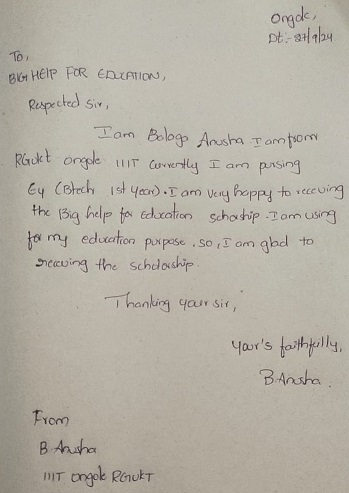 Ongole,
Dt:- 27/9/24
To,
BIG HELP FOR EDUCATION,
Respected Sir,
I am Bologo Anusha I am from
RGUKT ongole IIIT Currently I am pursing
E4 (Btech 1st year). I am very happy to receving
the Big help for education scholship. I am using
for my education purpose, so, I am glad to
receving the scholarship.
Thanking your sir,
your's faithfully,
B. Anusha.
From
B Anusha
IIIT ongole RGUKT